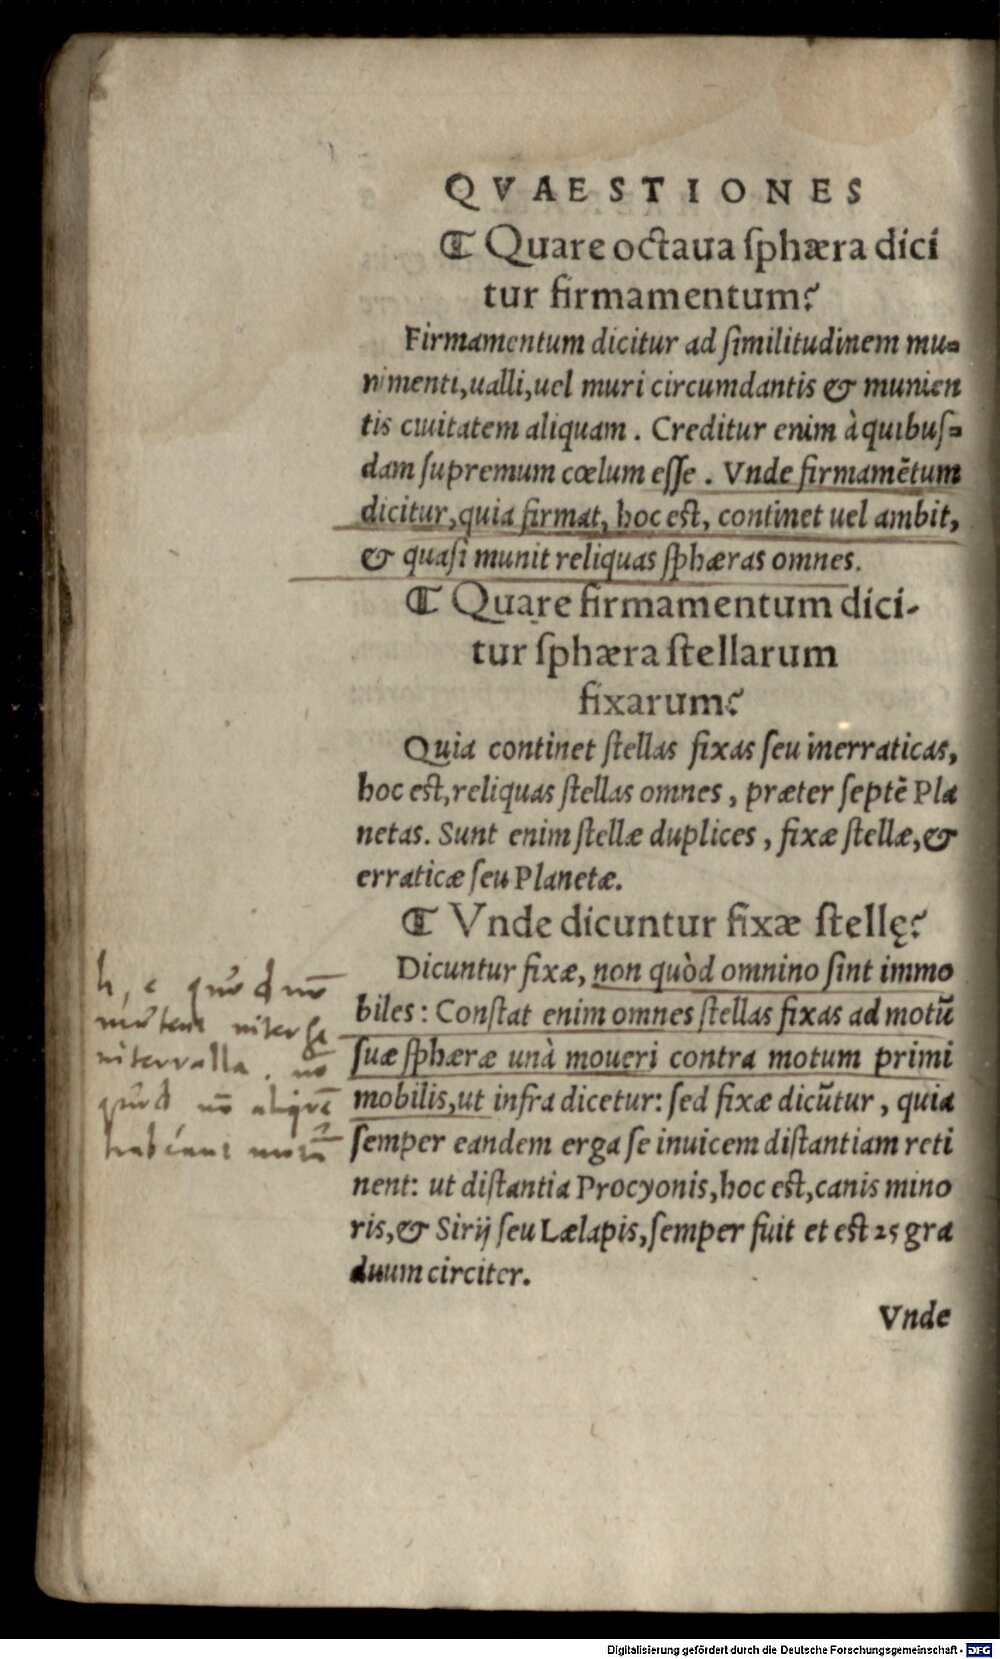 QVAESTIONES
¶ Quare octaua ſphæra dici
tur firmamentum?
Firmamentum dicitur ad ſimilitudinem mu-
nimenti, ualli, uel muri circumdantis & munien
tis ciuitatem aliquam. Creditur enim à quibuſ-
dam ſupremum cœlum eſſe. Vnde firmamẽtum
dicitur, quia firmat, hoc eſt, continet uel ambit,
& quaſi munit reliquas ſphæras omnes.
¶ Quare firmamentum dici-
tur ſphæra ſtellarum
fixarum?
Quia continet ſtellas fixas ſeu inerraticas,
hoc eſt, reliquas ſtellas omnes, præter ſeptẽ Pla
netas. Sunt enim ſtellæ duplices, fixæ ſtellæ, &
erraticæ ſeu Planetæ.
¶ Vnde dicuntur fixæ ſtellę?
Dicuntur fixæ, non quòd omnino ſint immo
biles: Conſtat enim omnes ſtellas fixas ad motũ
ſuæ ſphæræ unà moueri contra motum primi
mobilis, ut infra dicetur: ſed fixæ dicũtur, quia
ſemper eandem erga ſe inuicem diſtantiam reti
nent: ut diſtantia Procyonis, hoc eſt, canis mino
ris, & Sirij ſeu Lælapis, ſemper fuit et eſt 25 gra
duum circiter.
Vnde
h. e quod nō
inter se
intervalla. nō
quod nō
habeant motū
Digitalisierung gefördert durch die Deutsche Forschungsgemeinschaft - DFG